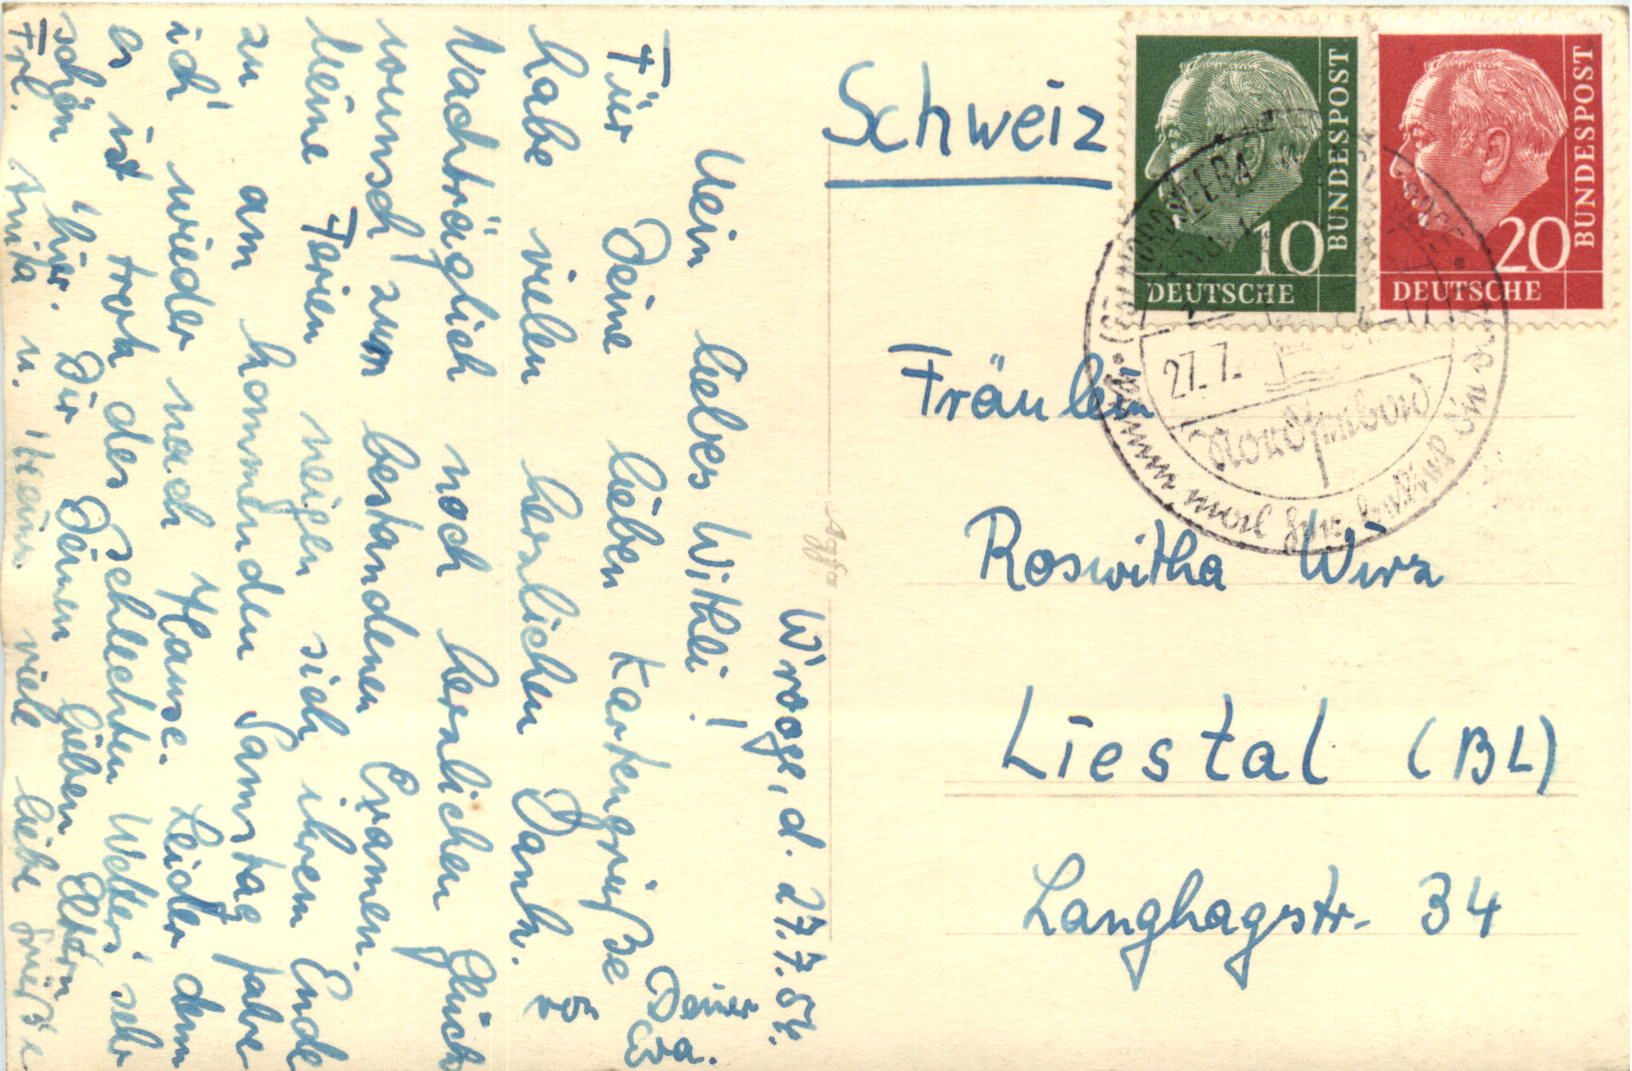 Schweiz
10
DEUTSCHE
BUNDESPOST
20
DEUTSCHE
BUNDESPOST
27.7.
Fräulein
Roswitha Wirz
Liestal (BL)
Langhagstr. 34
Agfa
d. 27.7.54.
Mein liebes Withli!
Für Deine lieben Kartengrüße
habe vielen herzlichen Dank.
Nachträglich noch herzlichen Glück
wunsch zum bestandenen Examen.
Meine Ferien neigen sich ihrem Ende
zu am kommenden Samstag fahre
ich wieder nach Hause. Leider denn
es ist trotz des schlechten Wetters sehr
schön hier. Dir Deinen lieben Eltern
Frl. Anita u. viele liebe Grüße
Deiner
Eva.